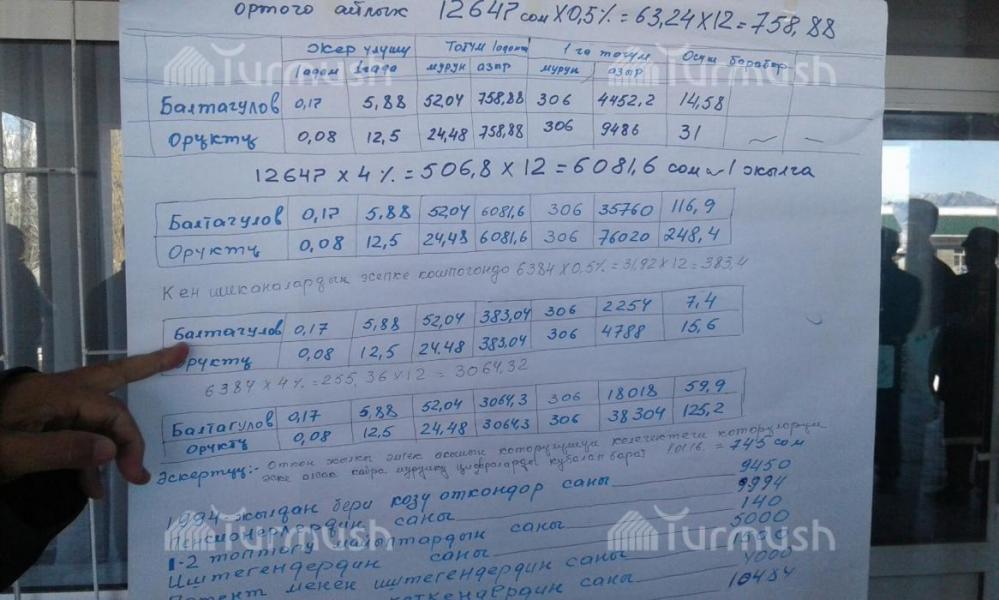 ортого айлык 12647 сом X 0,5% = 63,24 X 12 = 758,88
Жер улушу Тогум 1 га тогум Осуш
1 адам 1 гада мурун азыр мурун азыр
Балтагулов 0,17 5,88 52,04 758,88 306 4452,2 14,58
Оруктү 0,08 12,5 24,48 758,88 306 9486 31 ~ ~
12647 x 4 % = 506,8 x 12 = 6081,6 сом ~ 1 жылга
Балтагулов 0,17 5,88 52,04 6081,6 306 35760 116,9
Оруктү 0,08 12,5 24,48 6081,6 306 76020 248,4
Кен ишканалардын эсепке кошпогондо 6384 X 0,5% = 31,92 X 12 = 383,4
Балтагулов 0,17 5,88 52,04 383,04 306 2254 7,4
Оруктү 0,08 12,5 24.48 383,04 306 4788 15,6
6384 x 4 % = 255,36 x 12 = 3064,32
Балтагулов 0,17 5.88 52,04 3064,3 306 18018 59,9
Оруктү 0,08 12,5 24,48 3064,3 306 38304 125,2
Эскертүү:- Откон жылкы
эске алсак кайра мурунку цифраларды бара = 745 сом
1994 жылдан бери козу откондор саны 9450
Пенсионерлердин саны 9994
1-2 топтогу майыптардын саны 140
Иштегендердин саны 5000
Патент менен иштегендердин саны
саны 10484
Turmush
Turmush
Turmush
Turmush